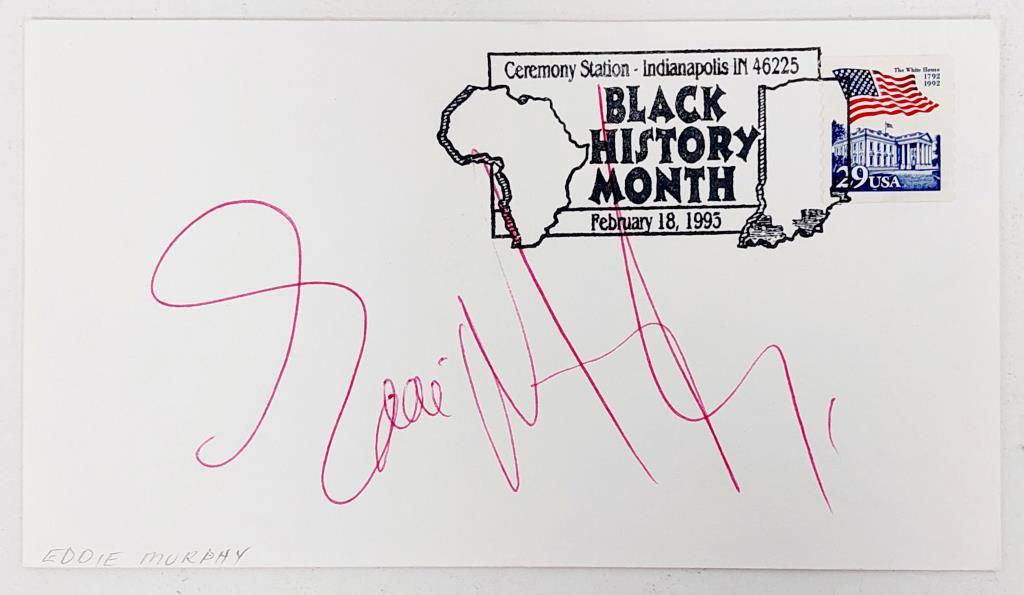 Ceremony Station - Indianapolis IN 46225
BLACK
HISTORY
MONTH
February 18, 1993
The White House
1792
1992
29 USA
Eddie Murphy
EDDIE MURPHY